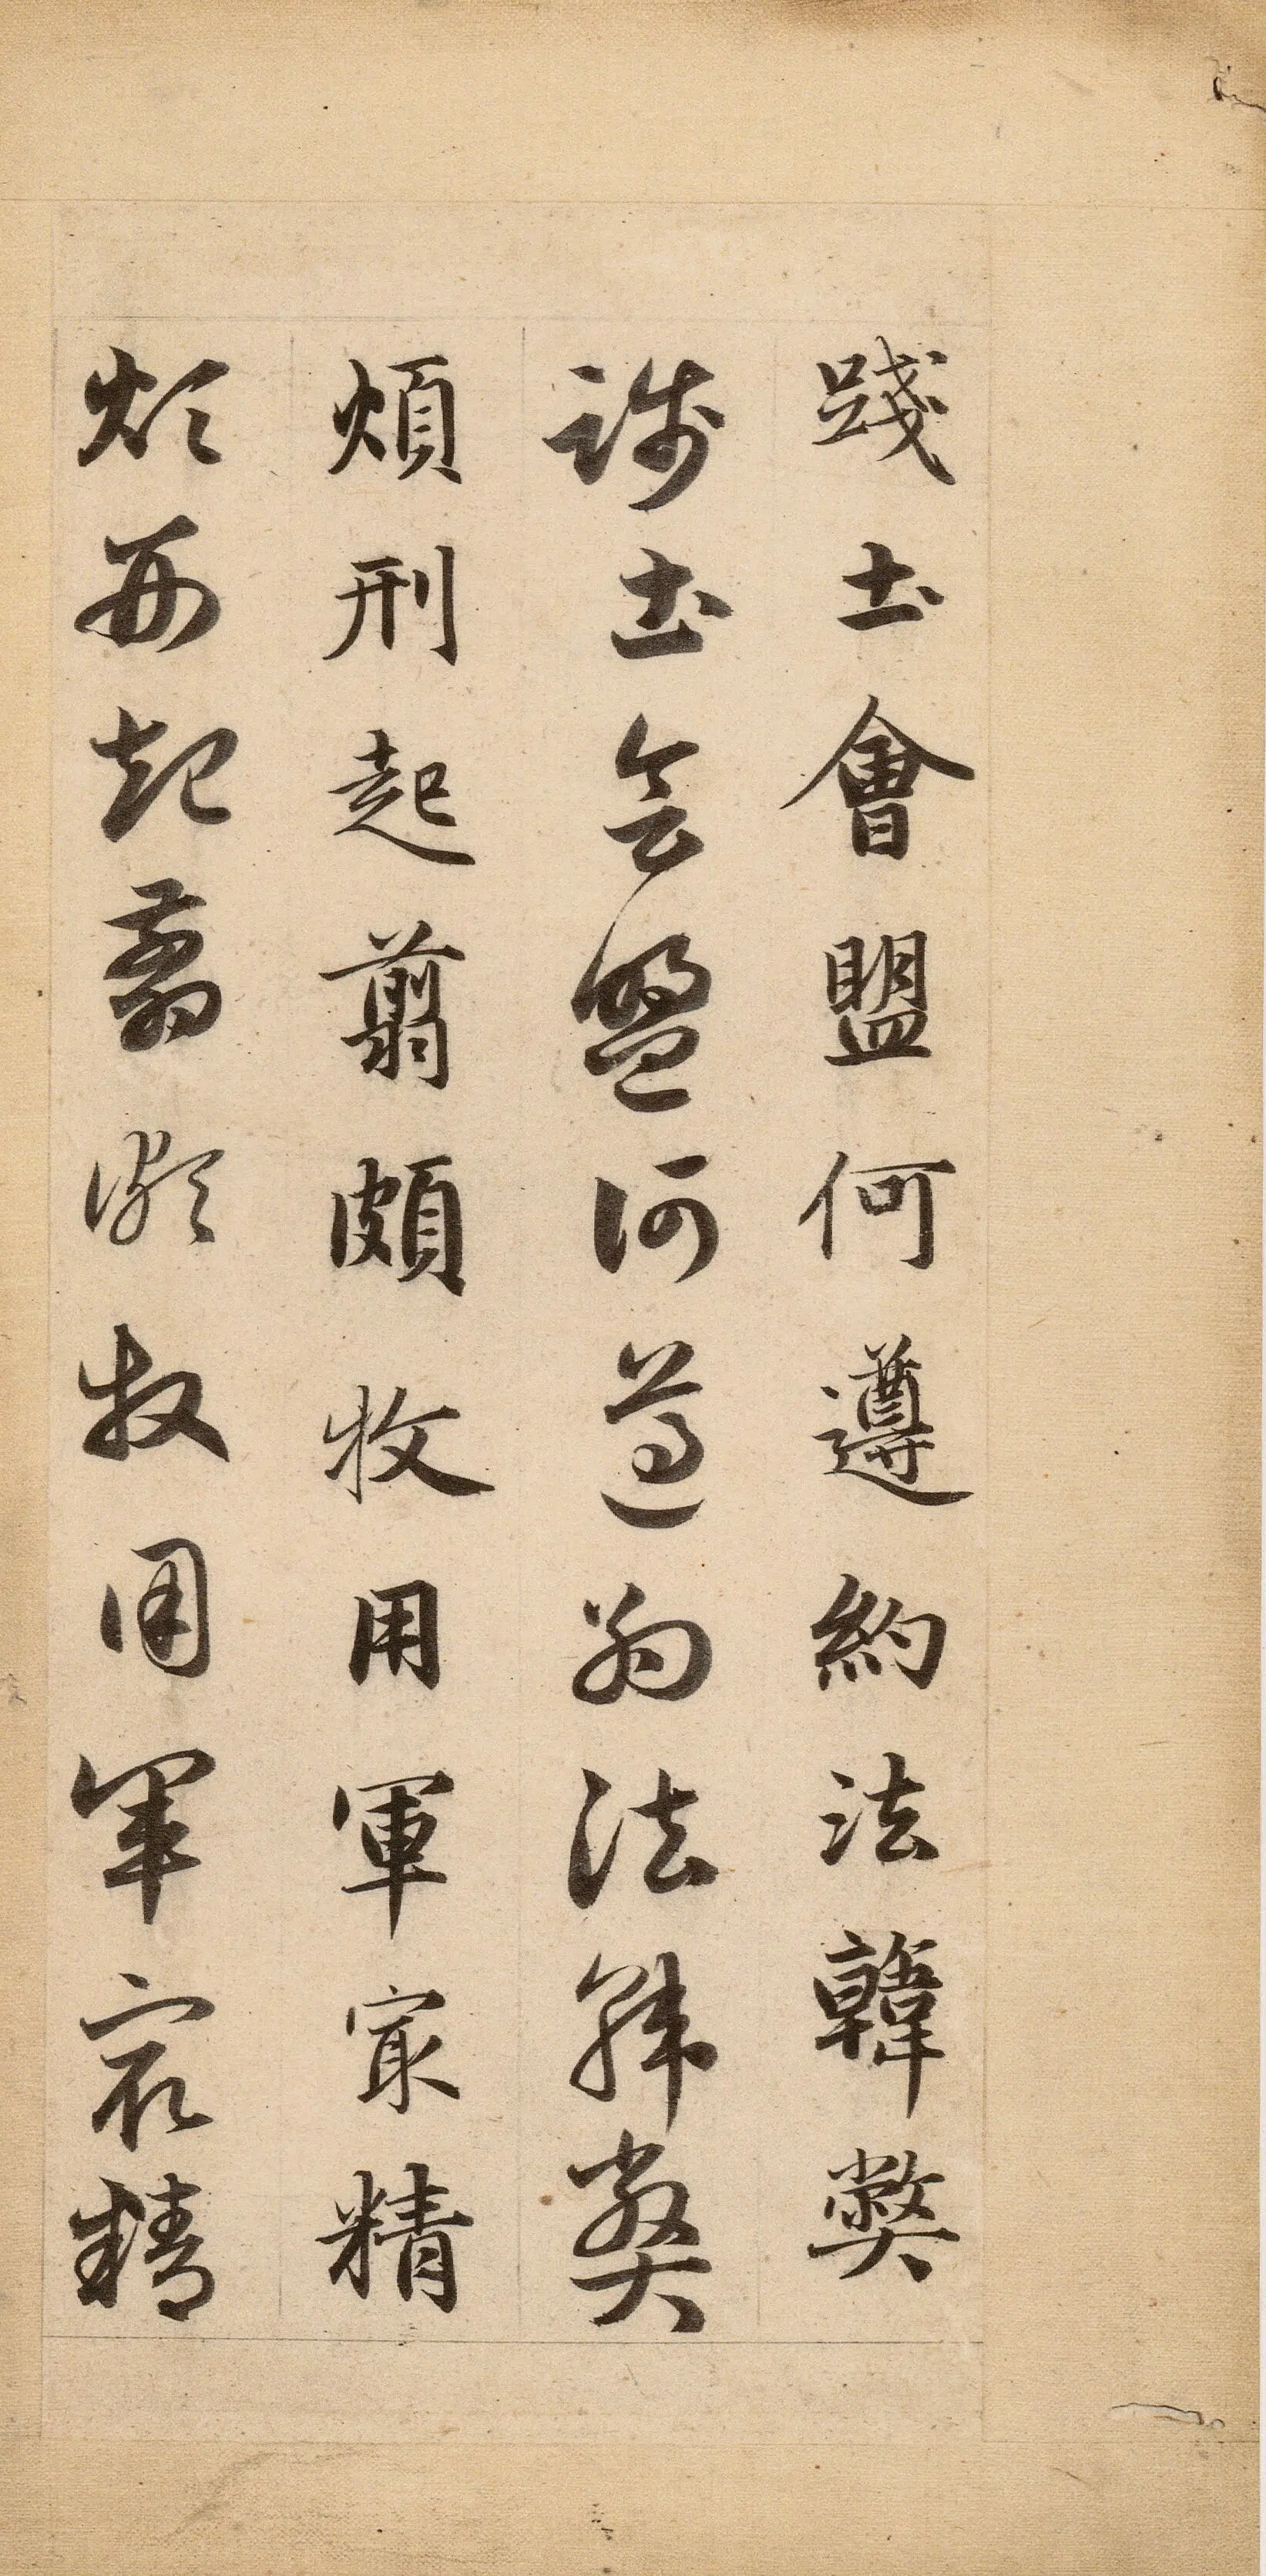 踐土會盟何遵約法韓弊
踐土會盟何遵約法韓弊
煩刑起翦頗牧用軍㝡精
煩刑起翦頗牧用軍㝡精